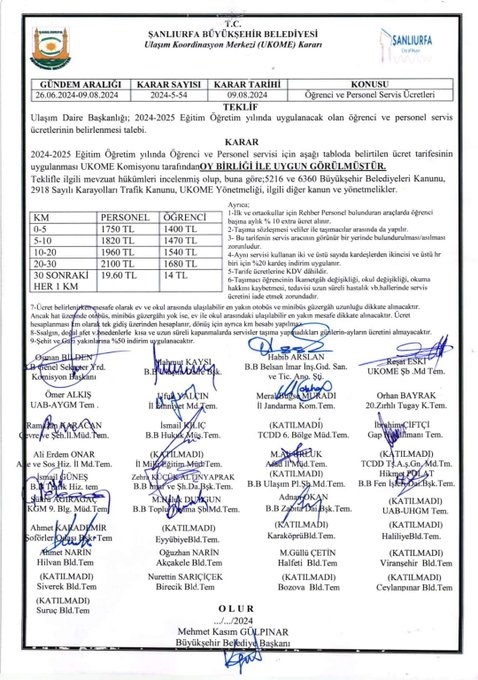 T.C.
ŞANLIURFA BÜYÜKŞEHİR BELEDİYESİ
Ulaşım Koordinasyon Merkezi (UKOME) Kararı
ŞANLIURFA
GÜNDEM ARALIĞI KARAR SAYISI KARAR TARİHİ KONUSU
26.06.2024-09.08.2024 2024-5-54 09.08.2024 Öğrenci ve Personel Servis Ücretleri
TEKLİF
Ulaşım Daire Başkanlığı; 2024-2025 Eğitim Öğretim yılında uygulanacak olan öğrenci ve personel servis
ücretlerinin belirlenmesi talebi.
KARAR
2024-2025 Eğitim Öğretim yılında Öğrenci ve Personel servisi için aşağı tabloda belirtilen ücret tarifesinin
uygulanması UKOME Komisyonu tarafından OY BİRLİĞİ İLE UYGUN GÖRÜLMÜŞTÜR.
Teklifle ilgili mevzuat hükümleri incelenmiş olup, buna göre;5216 ve 6360 Büyükşehir Belediyeleri Kanunu,
2918 Sayılı Karayolları Trafik Kanunu, UKOME Yönetmeliği, ilgili diğer kanun ve yönetmelikler.
KM PERSONEL ÖĞRENCİ
0-5 1750 TL 1400 TL
5-10 1820 TL 1470 TL
10-20 1960 TL 1540 TL
20-30 2100 TL 1680 TL
30 SONRAKİ HER 1 KM 19.60 TL 14 TL
Ayrıca;
1-İlk ve ortaokullar için Rehber Personel bulunduran araçlarda öğrenci
başına aylık % 10 extra ücret alınır.
2-Taşıma sözleşmesi veliler ile taşımacılar arasında da yapılır.
3- Bu tarifenin servis aracının görünür bir yerinde bulundurulması/asılması
zorunludur.
4-Aynı servisi kullanan iki ve üstü sayıda kardeşlerden ikincisi ve üstü hr
biri için %20 kardeş indirim uygulanır.
5-Tarife ücretlerine KDV dâhildir.
6-Taşımacı öğrencinin ikametgâh değişikliği, okul değişikliği, okuma
hakkını kaybetmesi, tedavisi uzun süreli hastalık vb.hallerinde servis
ücretini iade etmek zorundadır.
7-Ücret belirlenirken mesafe olarak ev ve okul arasında ulaşılabilir en yakın otobüs ve minibüs güzergah uzunluğu dikkate alınacaktır.
Ancak hat üzerinde otobüs, minibüs güzergâhı yok ise, ev ile okul arasındaki ulaşılabilir en yakın mesafe dikkate alınacaktır. Ücret
hesaplanması tam olarak tek gidiş üzerinden hesaplanır, dönüş için ayrıca km hesabı yapılmaz.
8-Salgın, doğal afet v.b nedenlerle kısa ve uzun süreli kapanmalarda servisler taşıma yapmadıkları günlerin-ayların ücretini almayacaktır.
9-Şehit ve Gazi yakınlarına %50 indirim uygulanır.
Osman BİLDEN Mahmut KAYSI Habib ARSLAN Reşat ESKİ
B.B Belsan İmar İnş.Gıd. San. UKOME Şb .Md Tem.
Komisyon Başkanı ve Tic. Ano. Şti.
Ömer ALKIŞ Orhan BAYRAK
UAB-AYGM Tem . İl Jandarma Kom.Tem. 20.Zırhlı Tugay K.Tem.
Ramazan KARACAN İsmail KILIÇ (KATILMADI) İbrahim ÇİFTÇİ
TCDD 6. Bölge Müd.Tem.
Ali Erdem ONAR (KATILMADI) (KATILMADI)
İl Milli Eğitim.Müd.Tem.
İsmail GÜNEŞ Hikmet POLAT
B.B Ulaşım Pl.Şb. Md.Tem.
Adnan OKAN (KATILMADI)
KGM 9. Blg. Müd.Tem UAB-UHGM Tem.
Ahmet KARADEMİR (KATILMADI) (KATILMADI) (KATILMADI)
EyyübiyeBld.Tem KaraköprüBld.Tem. HaliliyeBld.Tem.
Ahmet NARİN Oğuzhan NARİN M.Güllü ÇETİN (KATILMADI)
Hilvan Bld.Tem Akçakele Bld.Tem Halfeti Bld.Tem Viranşehir Bld.Tem
(KATILMADI) Nurettin SARIÇİÇEK (KATILMADI) (KATILMADI)
Siverek Bld.Tem Birecik Bld.Tem Bozova Bld.Tem Ceylanpınar Bld.Tem
(KATILMADI)
Suruç Bld.Tem
O L U R
.../.../2024
Mehmet Kasım GÜLPINAR
Büyükşehir Belediye Başkanı